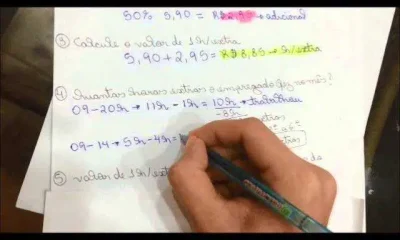 50% 5,90 = R$2,95 → adicional
③ Calcule o valor de 1h/extra
5,90 + 2,95 = R$8,85 → h/extra
④ Quantas horas extras o empregado fez no mês?
09-20h → 11h - 1h = 10h → trabalhou
-8h
09-14 → 5h - 4h =
⑤ valor de 1h/ext